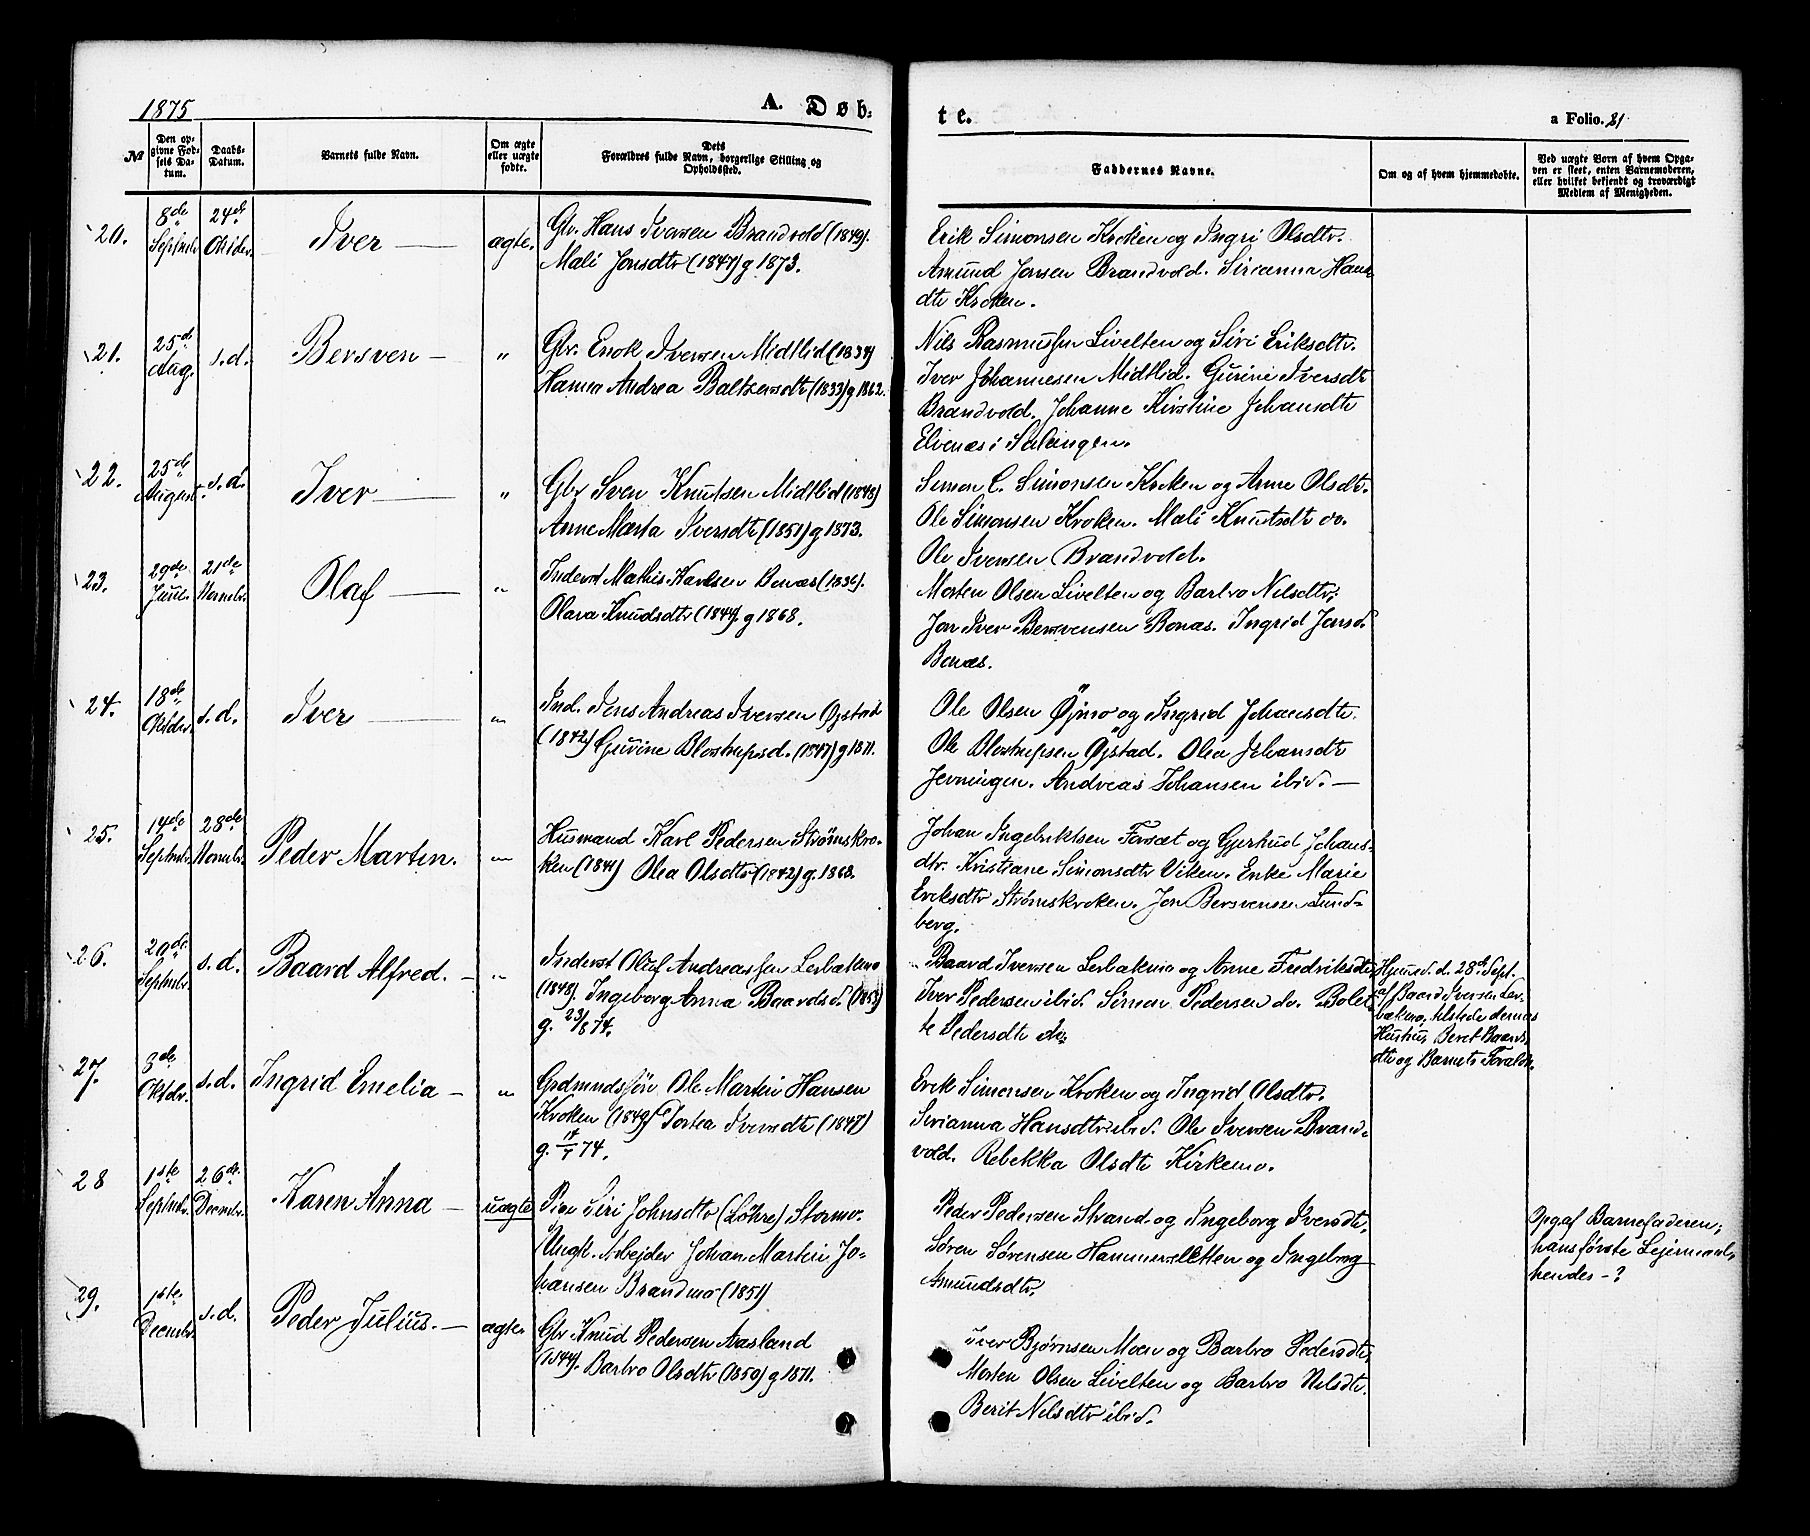 1875
A. Døb-
te.
a Folio. 21
№
Den op-
givne Fød-
sels Da-
tum.
Daabs-
Datum.
Barnets fulde Navn.
Om ægte
eller uægte
fødte.
Dets
Forældres fulde Navn, borgerlige Stilling og
Opholdssted.
Faddernes Navne.
Om og af hvem hjemmedøbte.
Ved uægte Born af hvem Opga-
ven er skeet, enten Barnemoderen,
eller hvilket bekjendt og troværdigt
Medlem af Menigheden.
20.
8de
Septmbr.
24de
Oktober
Iver
ægte.
Gbr. Hans Iversen Brandvold (1849).
Mali Jonsdtr (1847) g 1873.
Erik Simonsen Kroken og Ingri Olsdtr.
Amund Jonsen Brandvold. Sirianna Hans-
dtr Kroken.
21.
25de
Aug.
s.d.
Bersven
"
Gbr. Enok Iversen Midtlid (1834)
Hanna Andrea Baltzersdtr (1833) g 1862.
Nils Rasmussen Livelten og Siri Eriksdtr.
Iver Johannesen Midtlid. Gurine Iversdtr
Brandvold. Johanne Kirstine Johansdtr
Elvenæs i Salangen.
22.
25de
August.
s.d.
Iver
"
Gbr Sven Knutsen Midtlid (1848)
Anne Marta Iversdtr (1851) g 1873.
Simon C. Simonsen Kroken og Anne Olsdtr.
Ole Simonsen Kroken. Mali Knutsdtr do.
Ole Iversen Brandvold.
23.
29de
Juni.
21de
Novmbr.
Olaf
"
Inderst Mathis Karlsen Bonæs (1836).
Olava Knudsdtr (1844). g 1868.
Morten Olsen Livelten og Barbro Nilsdtr;
Jon Iver Bersvensen Bonæs. Ingrid Jonsd.
Bonæs.
24.
18de
Oktbr.
s.d.
Iver
"
Ind. Jens Andreas Iversen Øjstad
(1842) Gjurine Blostrupsd. (1847) g 1871.
Ole Olsen Øjmo og Ingrid Johansdtr.
Ole Blostrupsen Øjstad. Olea Johansdtr
Jevningen. Andreas Johansen ibid.
25.
14de
Septmbr.
28de
Novmbr.
Peder Martin.
"
Husmand Karl Pedersen Strømskro-
ken (1841) Olea Olsdtr (1842) g. 1868.
Johan Ingebriktsen Forsæt og Gjertrud Johans-
dtr. Kristiane Simonsdtr Viken. Enke Marie
Eriksdtr Strømskroken. Jon Bersvensen Lund-
berg.
26.
20de
Septmbr.
s.d.
Baard Alfred.
"
Inderst Oluf Andreassen Lerbækmo
(1848). Ingeborg Anna Baardsd.
g. 23/8 74.
Baard Iversen Lerbækmo og Anne Fredriksdtr,
Iver Pedersen ibid. Simon Pedersen do. Bolet-
te Pedersdtr do.
Hjemed. d. 28de Sept.
af Baard Iversen Ler-
bækmo, tilstede dennes
Hustru, Beret Baards-
dtr og Barnets Forældre.
27.
8de
Oktbr.
s.d.
Ingrid Emelia
"
Grdmndssøn Ole Martin Hansen
Kroken (1849) Tortea Iversdtr (1847)
g. 74.
Erik Simonsen Kroken og Ingrid Olsdtr.
Sirianna Hansdtr ibid. Ole Iversen Brand-
vold. Rebekka Olsdtr Kirkemo.
28
1ste
Septmbr.
26de
Decmbr.
Karen Anna
uægte
Pige Siri Johnsdtr (Løhre) Stormo.
Ungk. Arbejder Johan Martin Jo-
hansen Brandmo (1851)
Peder Pedersen Strand og Ingeborg Iversdtr,
Søren Sørensen Hammersletten og Ingeborg
Amundsdtr.
Opg. af Barnefaderen;
hans første Lejermaal,
hendes - ?
29.
1ste
Decmbr.
s.d.
Peder Julius.
ægte
Gbr Knud Pedersen Aasland
(1844). Barbro Olsdtr (1850) g 1871.
Iver Bjørnsen Moen og Barbro Pedersdtr,
Morten Olsen Livelten og Barbro Nilsdtr.
Berit Nilsdtr ibid.